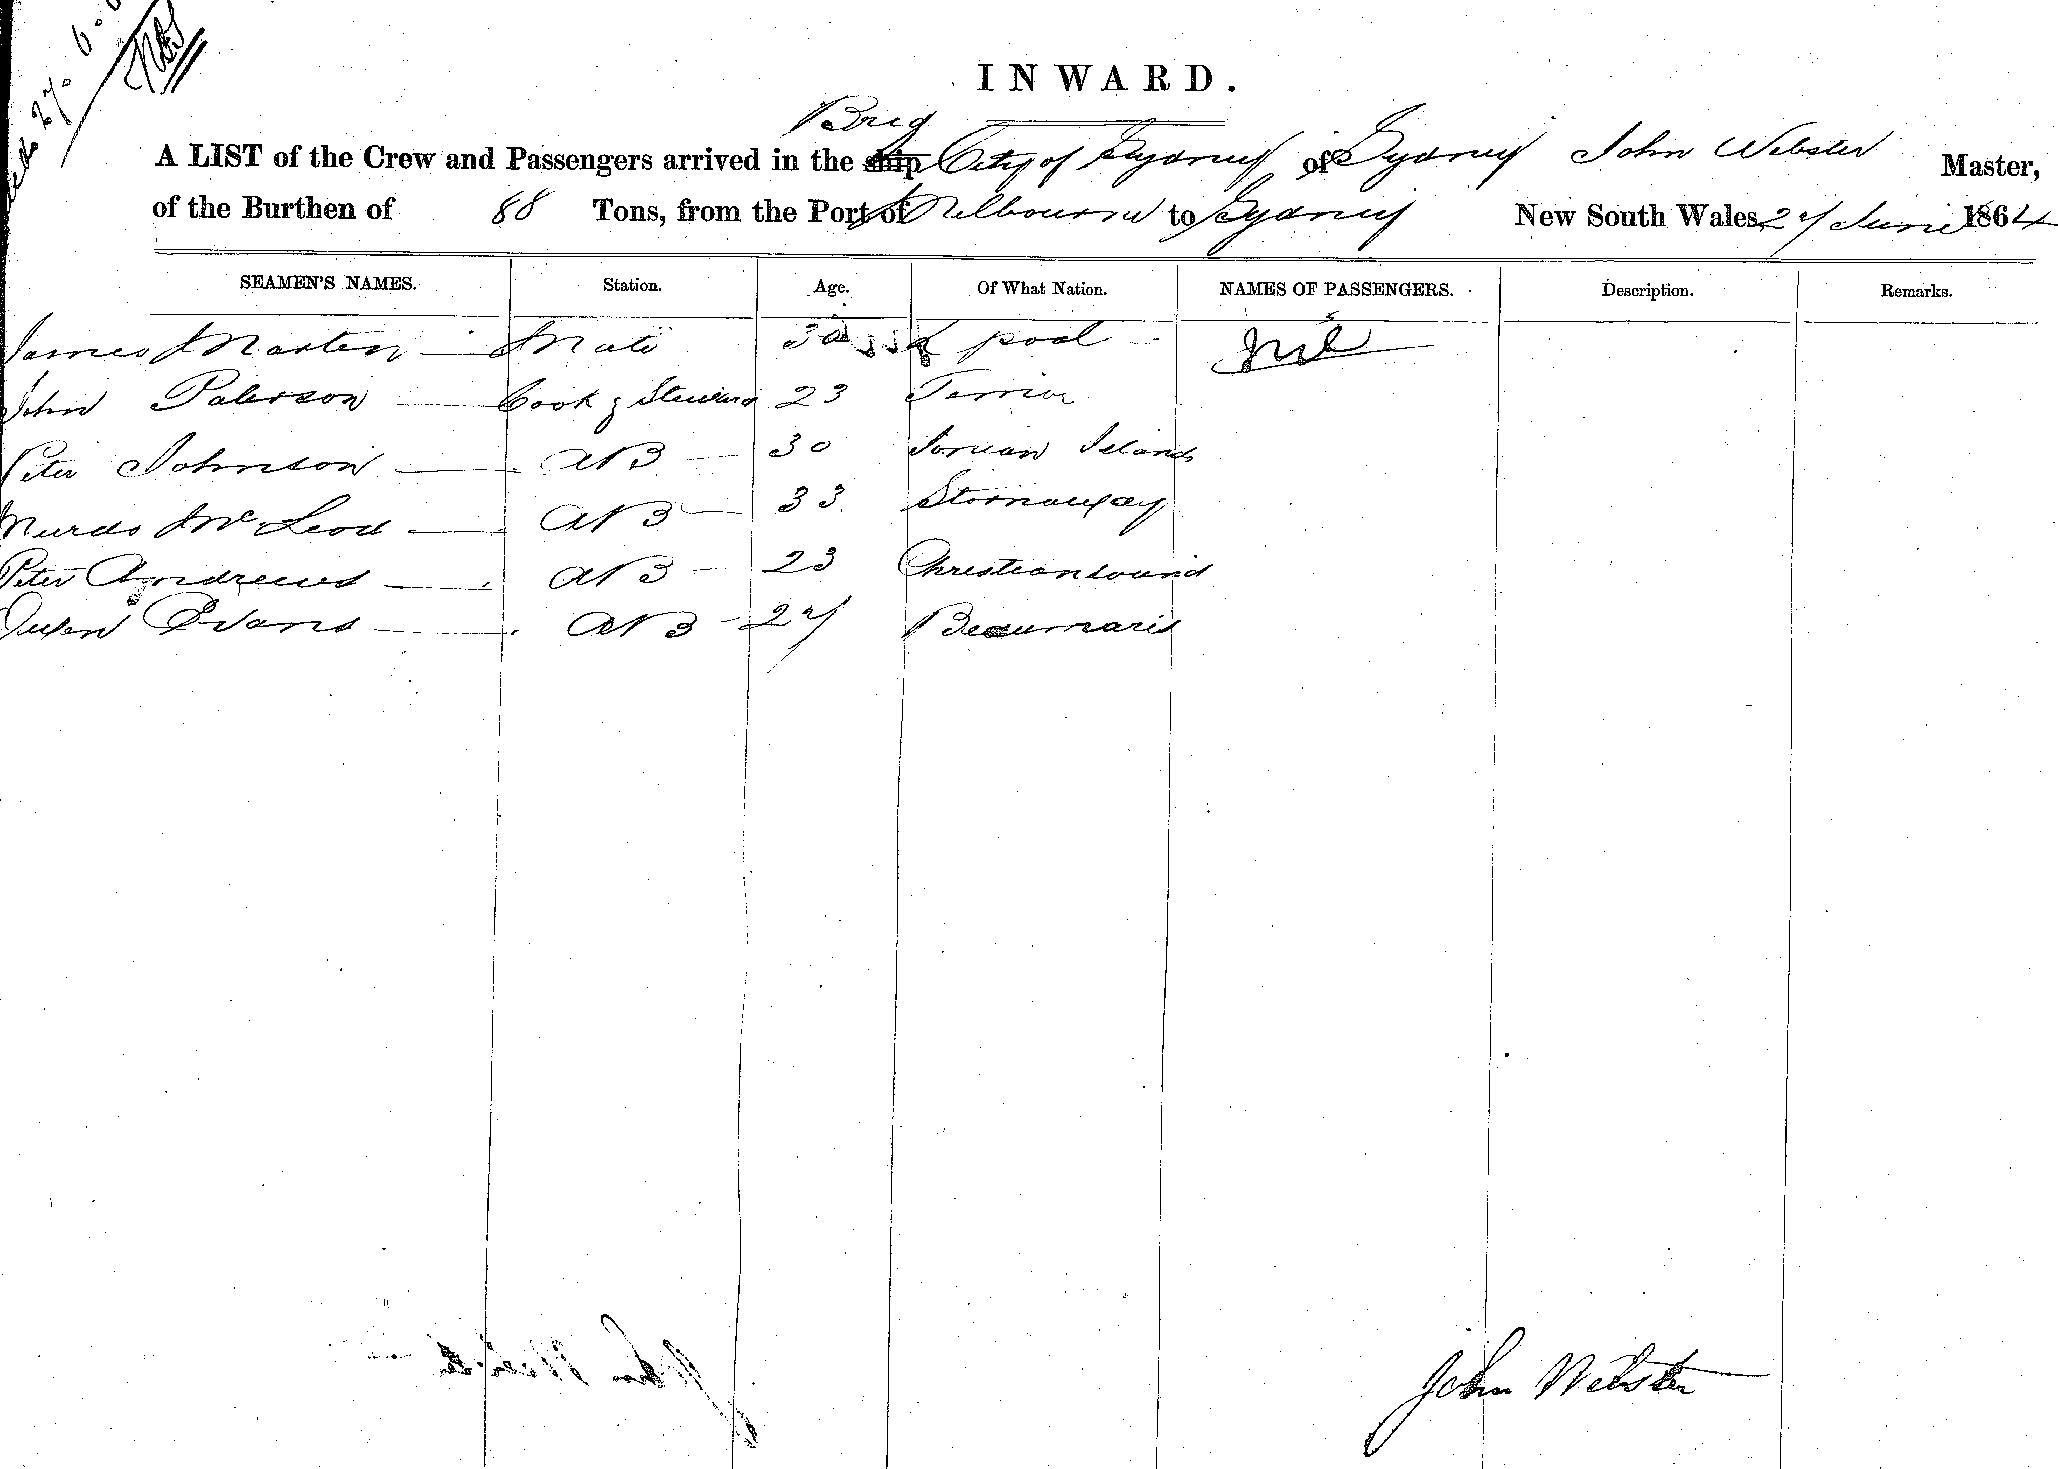 27. 6. 6
INWARD.
Brig
A LIST of the Crew and Passengers arrived in the ship City of Sydney of Sydney John Webster Master,
of the Burthen of 88 Tons, from the Port of Melbourne to Sydney New South Wales, 27 June 1864
SEAMEN'S NAMES. Station. Age. Of What Nation. NAMES OF PASSENGERS. Description. Remarks.
James Marten Mate 30 L pool Nil
John Paterson Cook & Steward 23
Peter Johnson AB 30 Island
Murdo McLeod AB 33 Stornaway
Peter Andrews AB 23 Christiansound
Evans AB 27 Beaumaris
John Webster